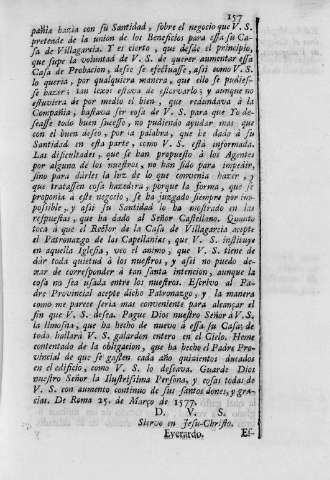 157
pañia hazia con su Santidad, sobre el negocio que V. S.
pretende de la union de los Beneficios para essa su Ca-
sa de Villagarcia. Y es cierto, que desde el principio,
que supe la voluntad de V. S. de querer aumentar essa
Casa de Probacion, desseè se efectuasse, assi como V. S.
lo queria, por qualquiera manera, que ello se pudies-
se hazer; tan lexos estava de estorvarlo; y aunque no
estuviera de por medio el bien, que redundava à la
Compañia, bastava ser cosa de V. S. para que Yo de-
seasse todo buen sucesso, no pudiendo ayudar mas que
con el buen deseo, por la palabra, que he dado à su
Santidad en esta parte, como V. S. està informada.
Las dificultades, que se han propuesto à los Agentes
por alguna de los nuestros, no han sido para impedir,
sino para dàrles la luz de lo que convenia hazer, y
que tratassen cosa hazedera, porque la forma, que se
proponia à este negocio, se ha juzgado siempre por im-
possible, y assi su Santidad lo ha mostrado en las
respuestas, que ha dado al Señor Castellano. Quanto
toca à que el Rector de la Casa de Villagarcia acepte
el Patronazgo de las Capellanias, que V. S. instituye
en aquella Iglesia, veo el animo, que V. S. tiene de
dàr toda quietud à los nuestros, y assi no puedo de-
xar de corresponder à tan santa intencion, aunque la
cosa no sea usada entre los nuestros. Escrivo al Pa-
dre Provincial acepte dicho Patronazgo, y la manera
como me parece seria mas conveniente para alcanzar el
fin que V. S. desea. Pague Dios nuestro Señor à V. S.
la limosna, que ha hecho de nuevo à essa su Casa; de
todo hallarà V. S. galardon entero en el Cielo. Heme
contentado de la obligacion, que ha hecho el Padre Pro-
vincial de que se gasten cada año quinientos ducados
en el edificio, como V. S. lo deseava. Guarde Dios
nuestro Señor la Ilustrissima Persona, y cosas todas de
V. S. con aumento continuo de sus santos dones, y gra-
cias. De Roma 25. de Março de 1577.
D. V. S.
Siervo en Jesu-Christo.
Everardo. Es-